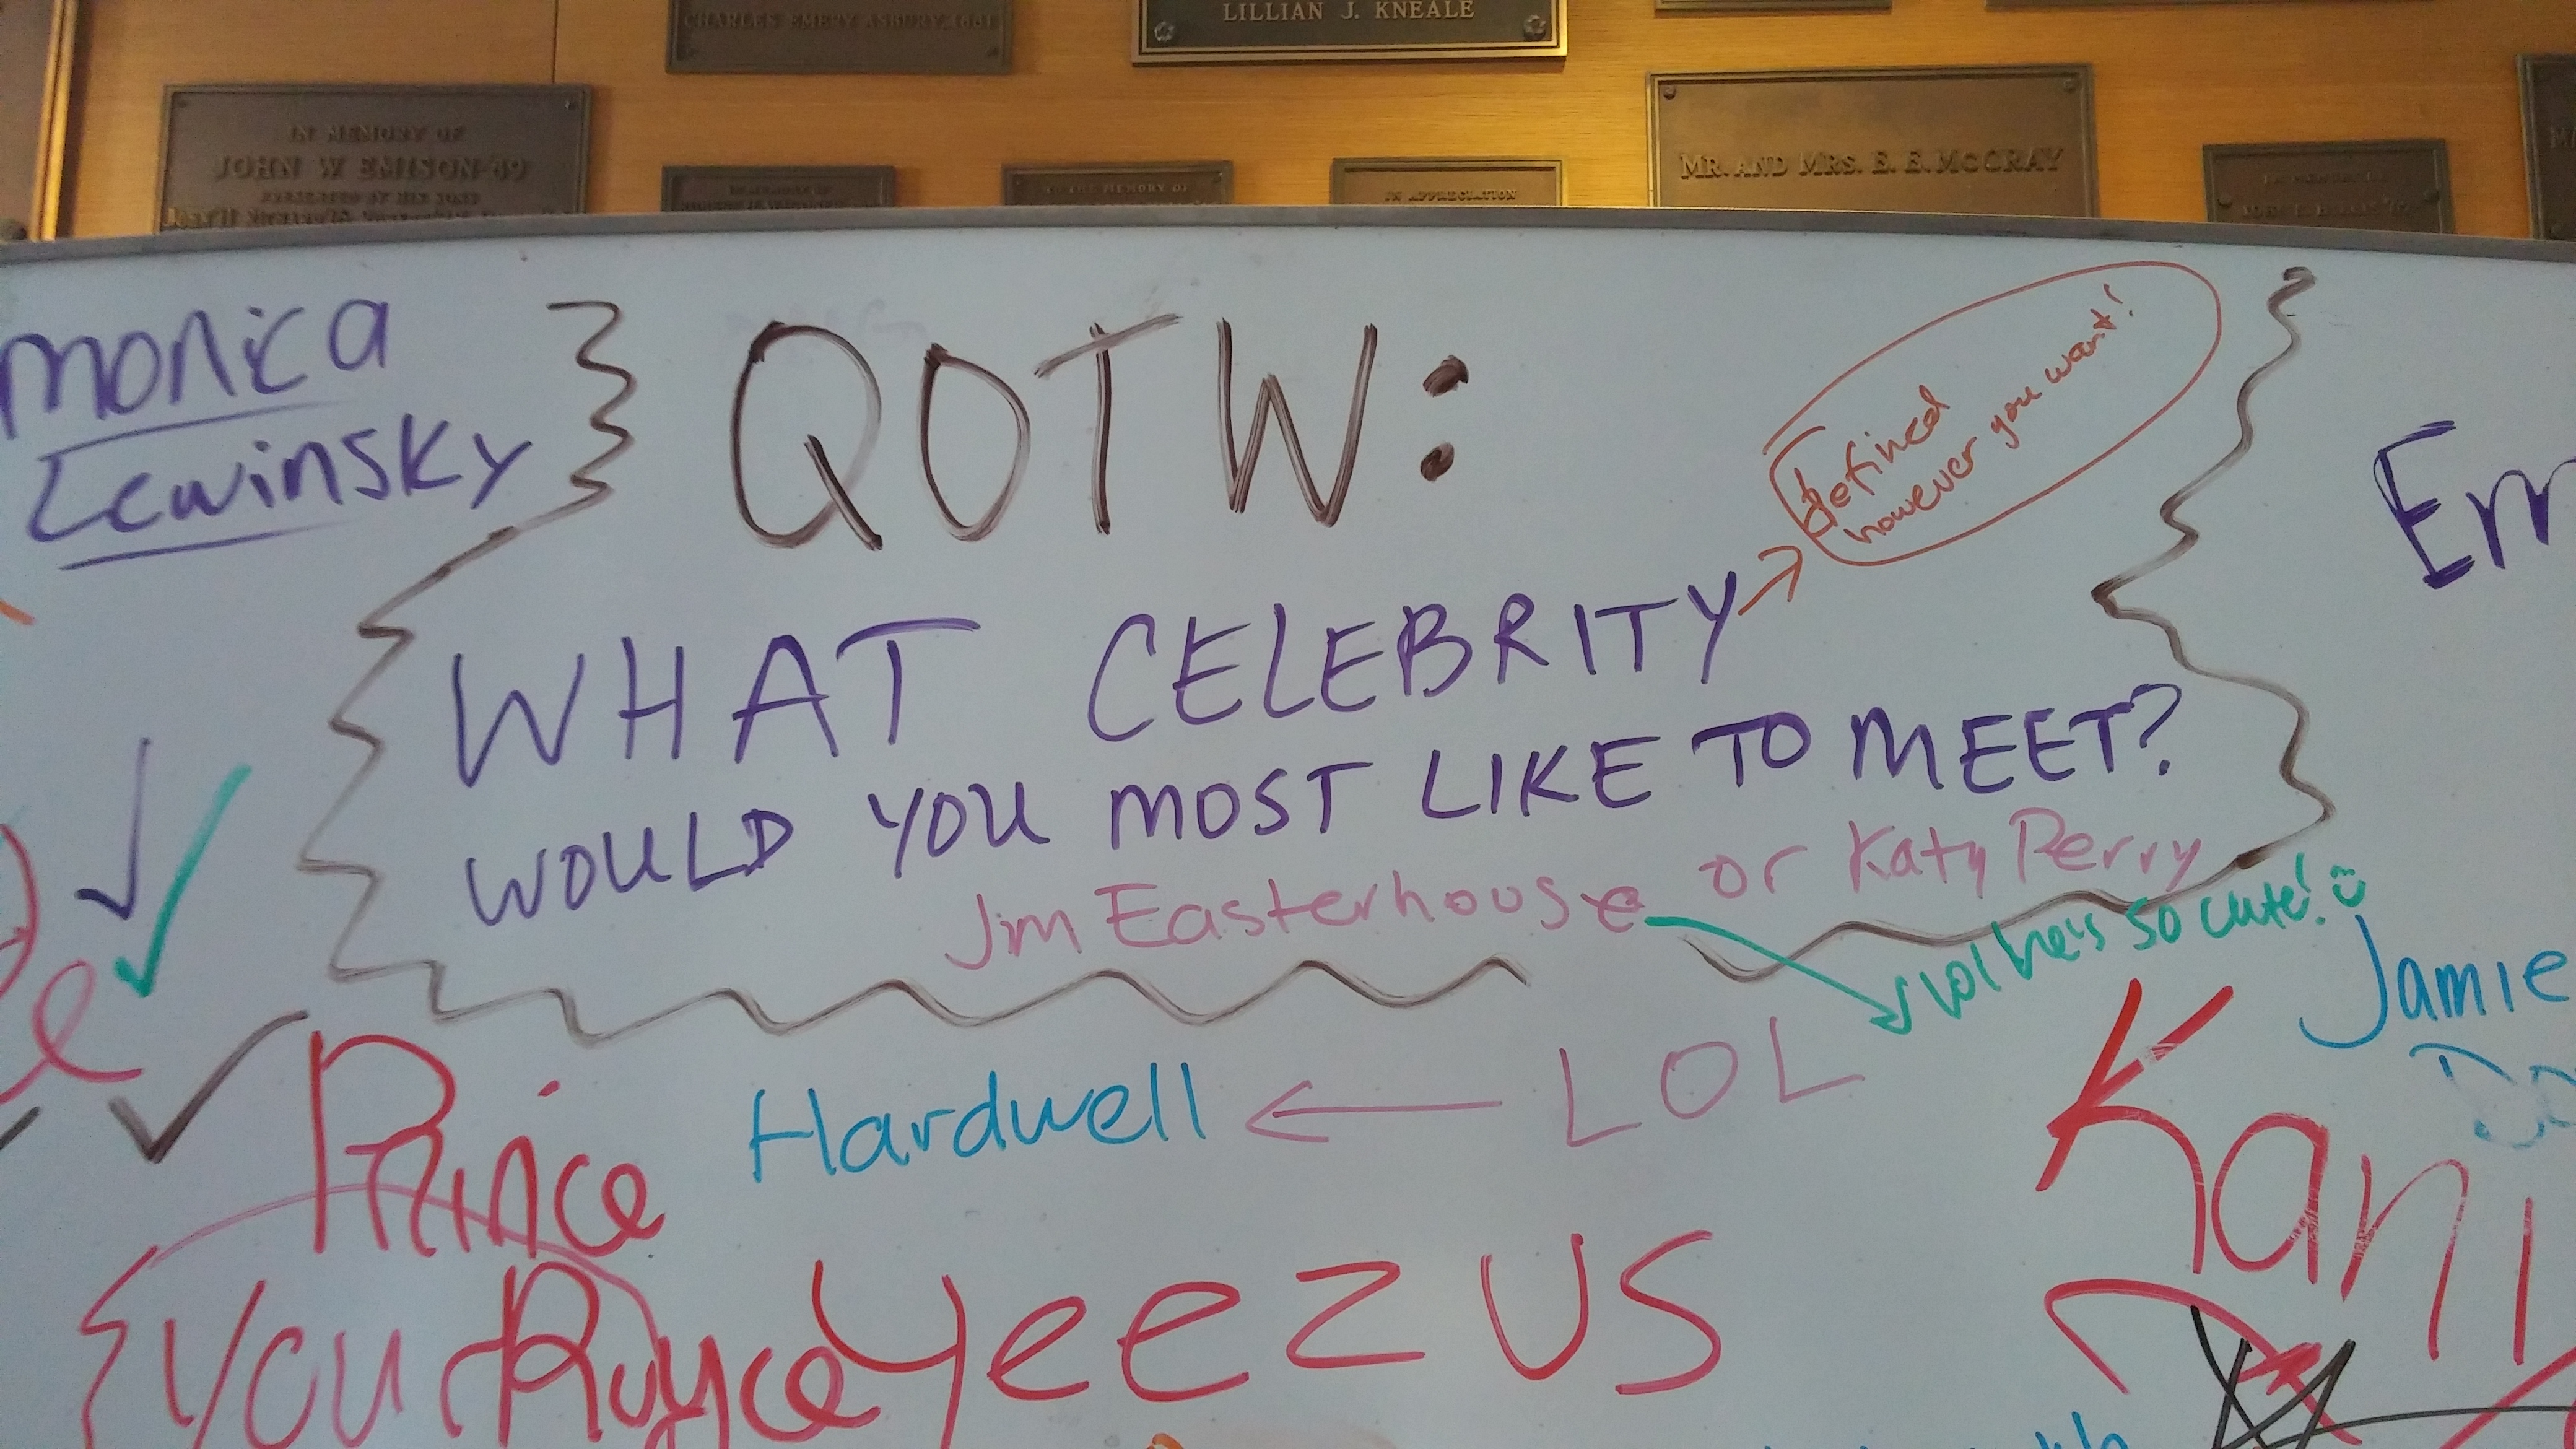 CHARLES EMERY ASBURY, 1881
LILLIAN J. KNEALE
IN MEMORY OF
JOHN W. EMISON '89
PRESENTED BY HIS SONS
TO THE MEMORY OF
IN APPRECIATION
MR. AND MRS. E. E. McCRAY
monica
Lewinsky
QOTW:
defined
however you want!
WHAT CELEBRITY
WOULD YOU MOST LIKE TO MEET?
Jim Easterhouse or Katy Perry
lol he's so cute!
Jamie
Prince
Royce
Hardwell ← LOL
Your
Yeezus